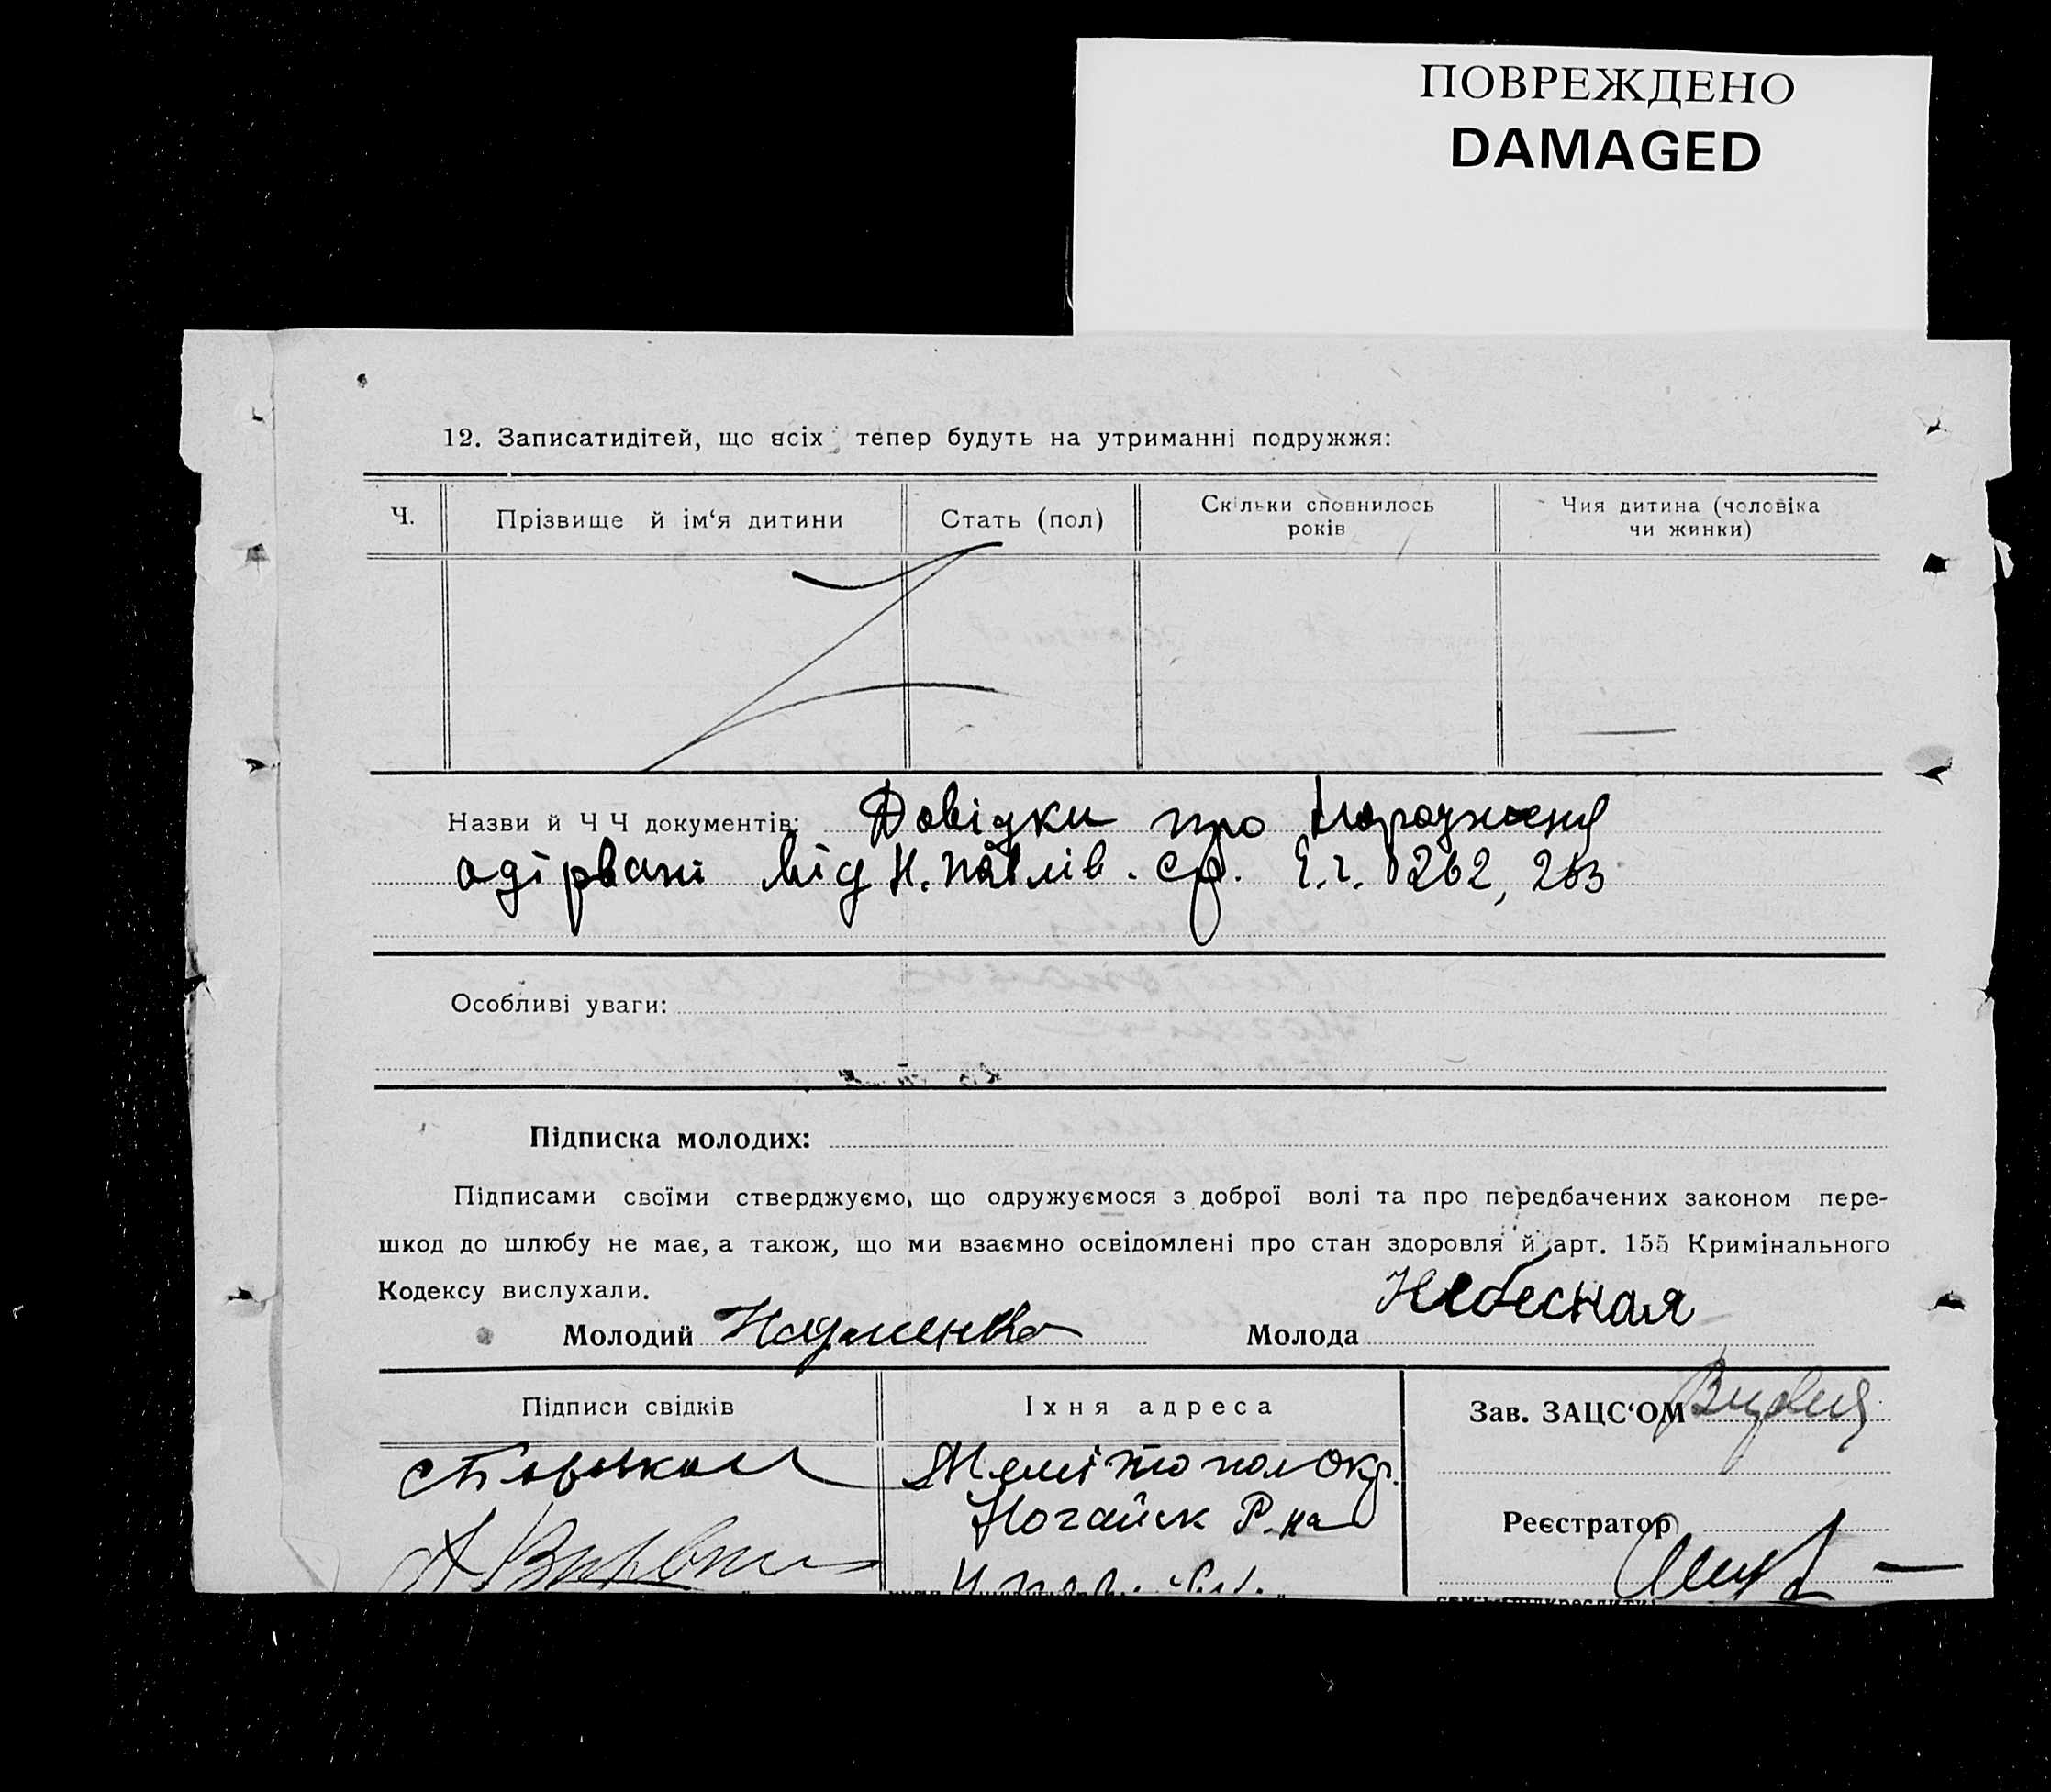 ПОВРЕЖДЕНО
DAMAGED
12. Записатидітей, що всіх тепер будуть на утриманні подружжя:
Ч.
Прізвище й ім‘я дитини
Стать (пол)
Скільки сповнилось
років
Чия дитина (чоловіка
чи жинки)
Назви й Ч Ч документів: Довідки про народження
одірвані від Н. Павлів. ср. 262, 263
Особливі уваги:
Підписка молодих:
Підписами своїми стверджуємо, що одружуємося з доброї волі та про передбачених законом пере-
шкод до шлюбу не має, а також, що ми взаємно освідомлені про стан здоровля й арт. 155 Кримінального
Кодексу вислухали.
Молодий Науменко
Молода Небесная
Підписи свідків
Їхня адреса
Зав. ЗАЦС‘ОМ
Мелітопол Окр.
Ногайск Р-на
Реєстратор